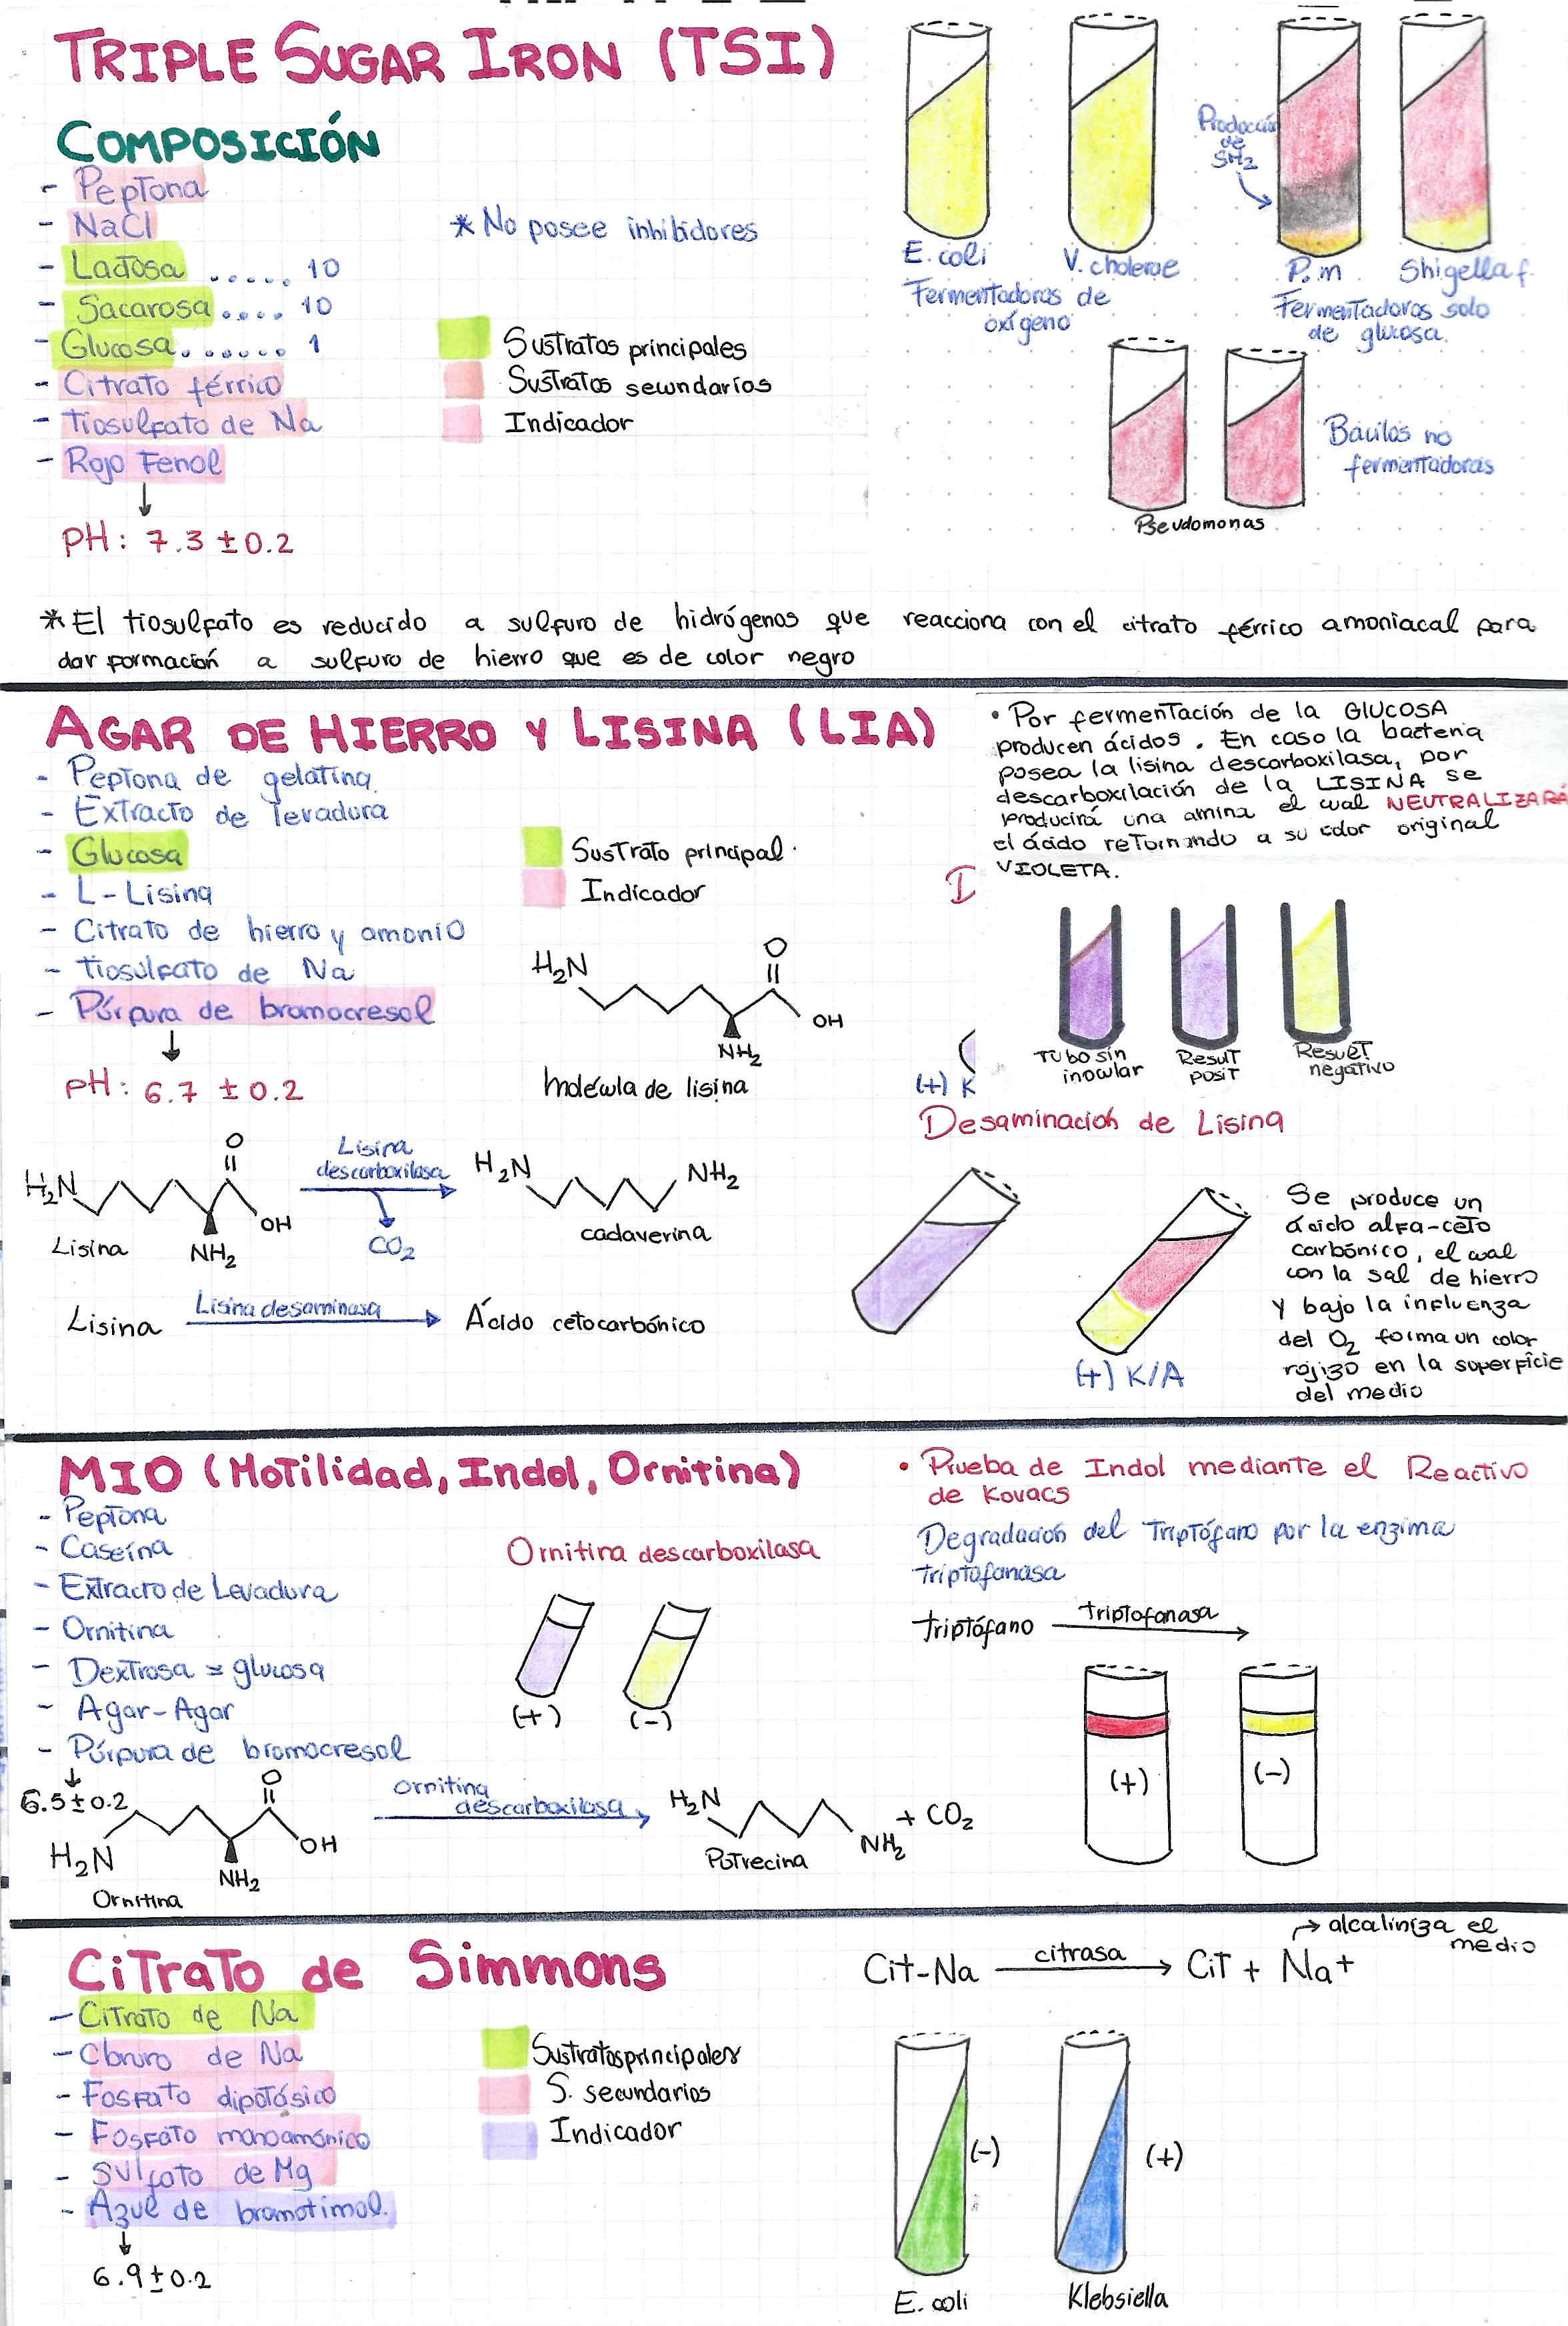 TRIPLE SUGAR IRON (TSI)
COMPOSICIÓN
- Peptona
- NaCl
- Lactosa ..... 10
- Sacarosa .... 10
- Glucosa ...... 1
- Citrato férrico
- Tiosulfato de Na
- Rojo Fenol
pH: 7.3 ±0.2
* No posee inhibidores
Sustratos principales
Sustratos secundarios
Indicador
E. coli
V. cholerae
Fermentadoras de
oxígeno
Producción
de
SH2
P. m
Shigella f.
Fermentadoras solo
de glucosa.
Bacilos no
fermentadoras
Pseudomonas
* El tiosulfato es reducido a sulfuro de hidrógenos que reacciona con el citrato férrico amoniacal para
dar formación a sulfuro de hierro que es de color negro
AGAR DE HIERRO Y LISINA (LIA)
- Peptona de gelatina
- Extracto de levadura
- Glucosa
- L-Lisina
- Citrato de hierro y amonio
- Tiosulfato de Na
- Púrpura de bromocresol
pH: 6.7 ±0.2
Sustrato principal.
Indicador
H2N
O
OH
NH2
Molécula de lisina
• Por fermentación de la GLUCOSA
producen ácidos. En caso la bacteria
posea la lisina descarboxilasa, por
descarboxilación de la LISINA se
producirá una amina el cual NEUTRALIZARÁ
el ácido retornando a su color original
VIOLETA.
Tubo sin
inocular
Result
posit
Result
negativo
(+) K
Desaminación de Lisina
H2N
O
OH
NH2
Lisina
Lisina
descarboxilasa
CO2
H2N
NH2
cadaverina
Lisina
Lisina desaminasa
Ácido cetocarbónico
(+) K/A
Se produce un
ácido alfa-ceto
carbónico, el cual
con la sal de hierro
y bajo la influenza
del O2 forma un color
rojizo en la superficie
del medio
MIO (Motilidad, Indol, Ornitina)
- Peptona
- Caseína
- Extracto de Levadura
- Ornitina
- Dextrosa ≃ glucosa
- Agar-Agar
- Púrpura de bromocresol
6.5±0.2
Ornitina descarboxilasa
(+)
(-)
H2N
O
OH
NH2
Ornitina
ornitina
descarboxilasa
H2N
NH2
+ CO2
Putrecina
• Prueba de Indol mediante el Reactivo
de Kovacs
Degradación del Triptófano por la enzima
triptofanasa
Triptófano
triptofanasa
(+)
(-)
Citrato de Simmons
- Citrato de Na
- Cloruro de Na
- Fosfato dipotásico
- Fosfato monoamónico
- Sulfato de Mg
- Azul de bromotimol.
6.9±0.2
Sustratos principales
S. secundarios
Indicador
Cit-Na
citrasa
Cit + Na+
alcaliniza el
medio
(-)
(+)
E. coli
Klebsiella